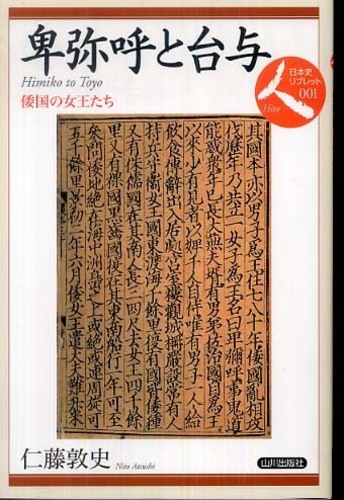 卑弥呼と台与
Himiko to Toyo
倭国の女王たち
人
Hito
日本史
リブレット
001
其國本亦以男子為王住七八十年倭國亂相攻
伐歷年乃共立一女子為王名曰卑彌呼事鬼道
能惑衆年已長大無夫壻有男弟佐治國自為王
以來少有見者以婢千人自侍唯有男子一人給
飲食傳辭出入居處宮室樓觀城柵嚴設常有人
持兵守衛女王國東渡海千餘里復有國皆倭種
又有侏儒國在其南人長三四尺去女王四千餘
里又有裸國黑齒國復在其東南船行一年可至
參問倭地絕在海中洲島之上或絕或連周旋可
五千餘里景初二年六月倭女王遣大夫難升米
仁藤敦史
Nito Atsushi
山川出版社